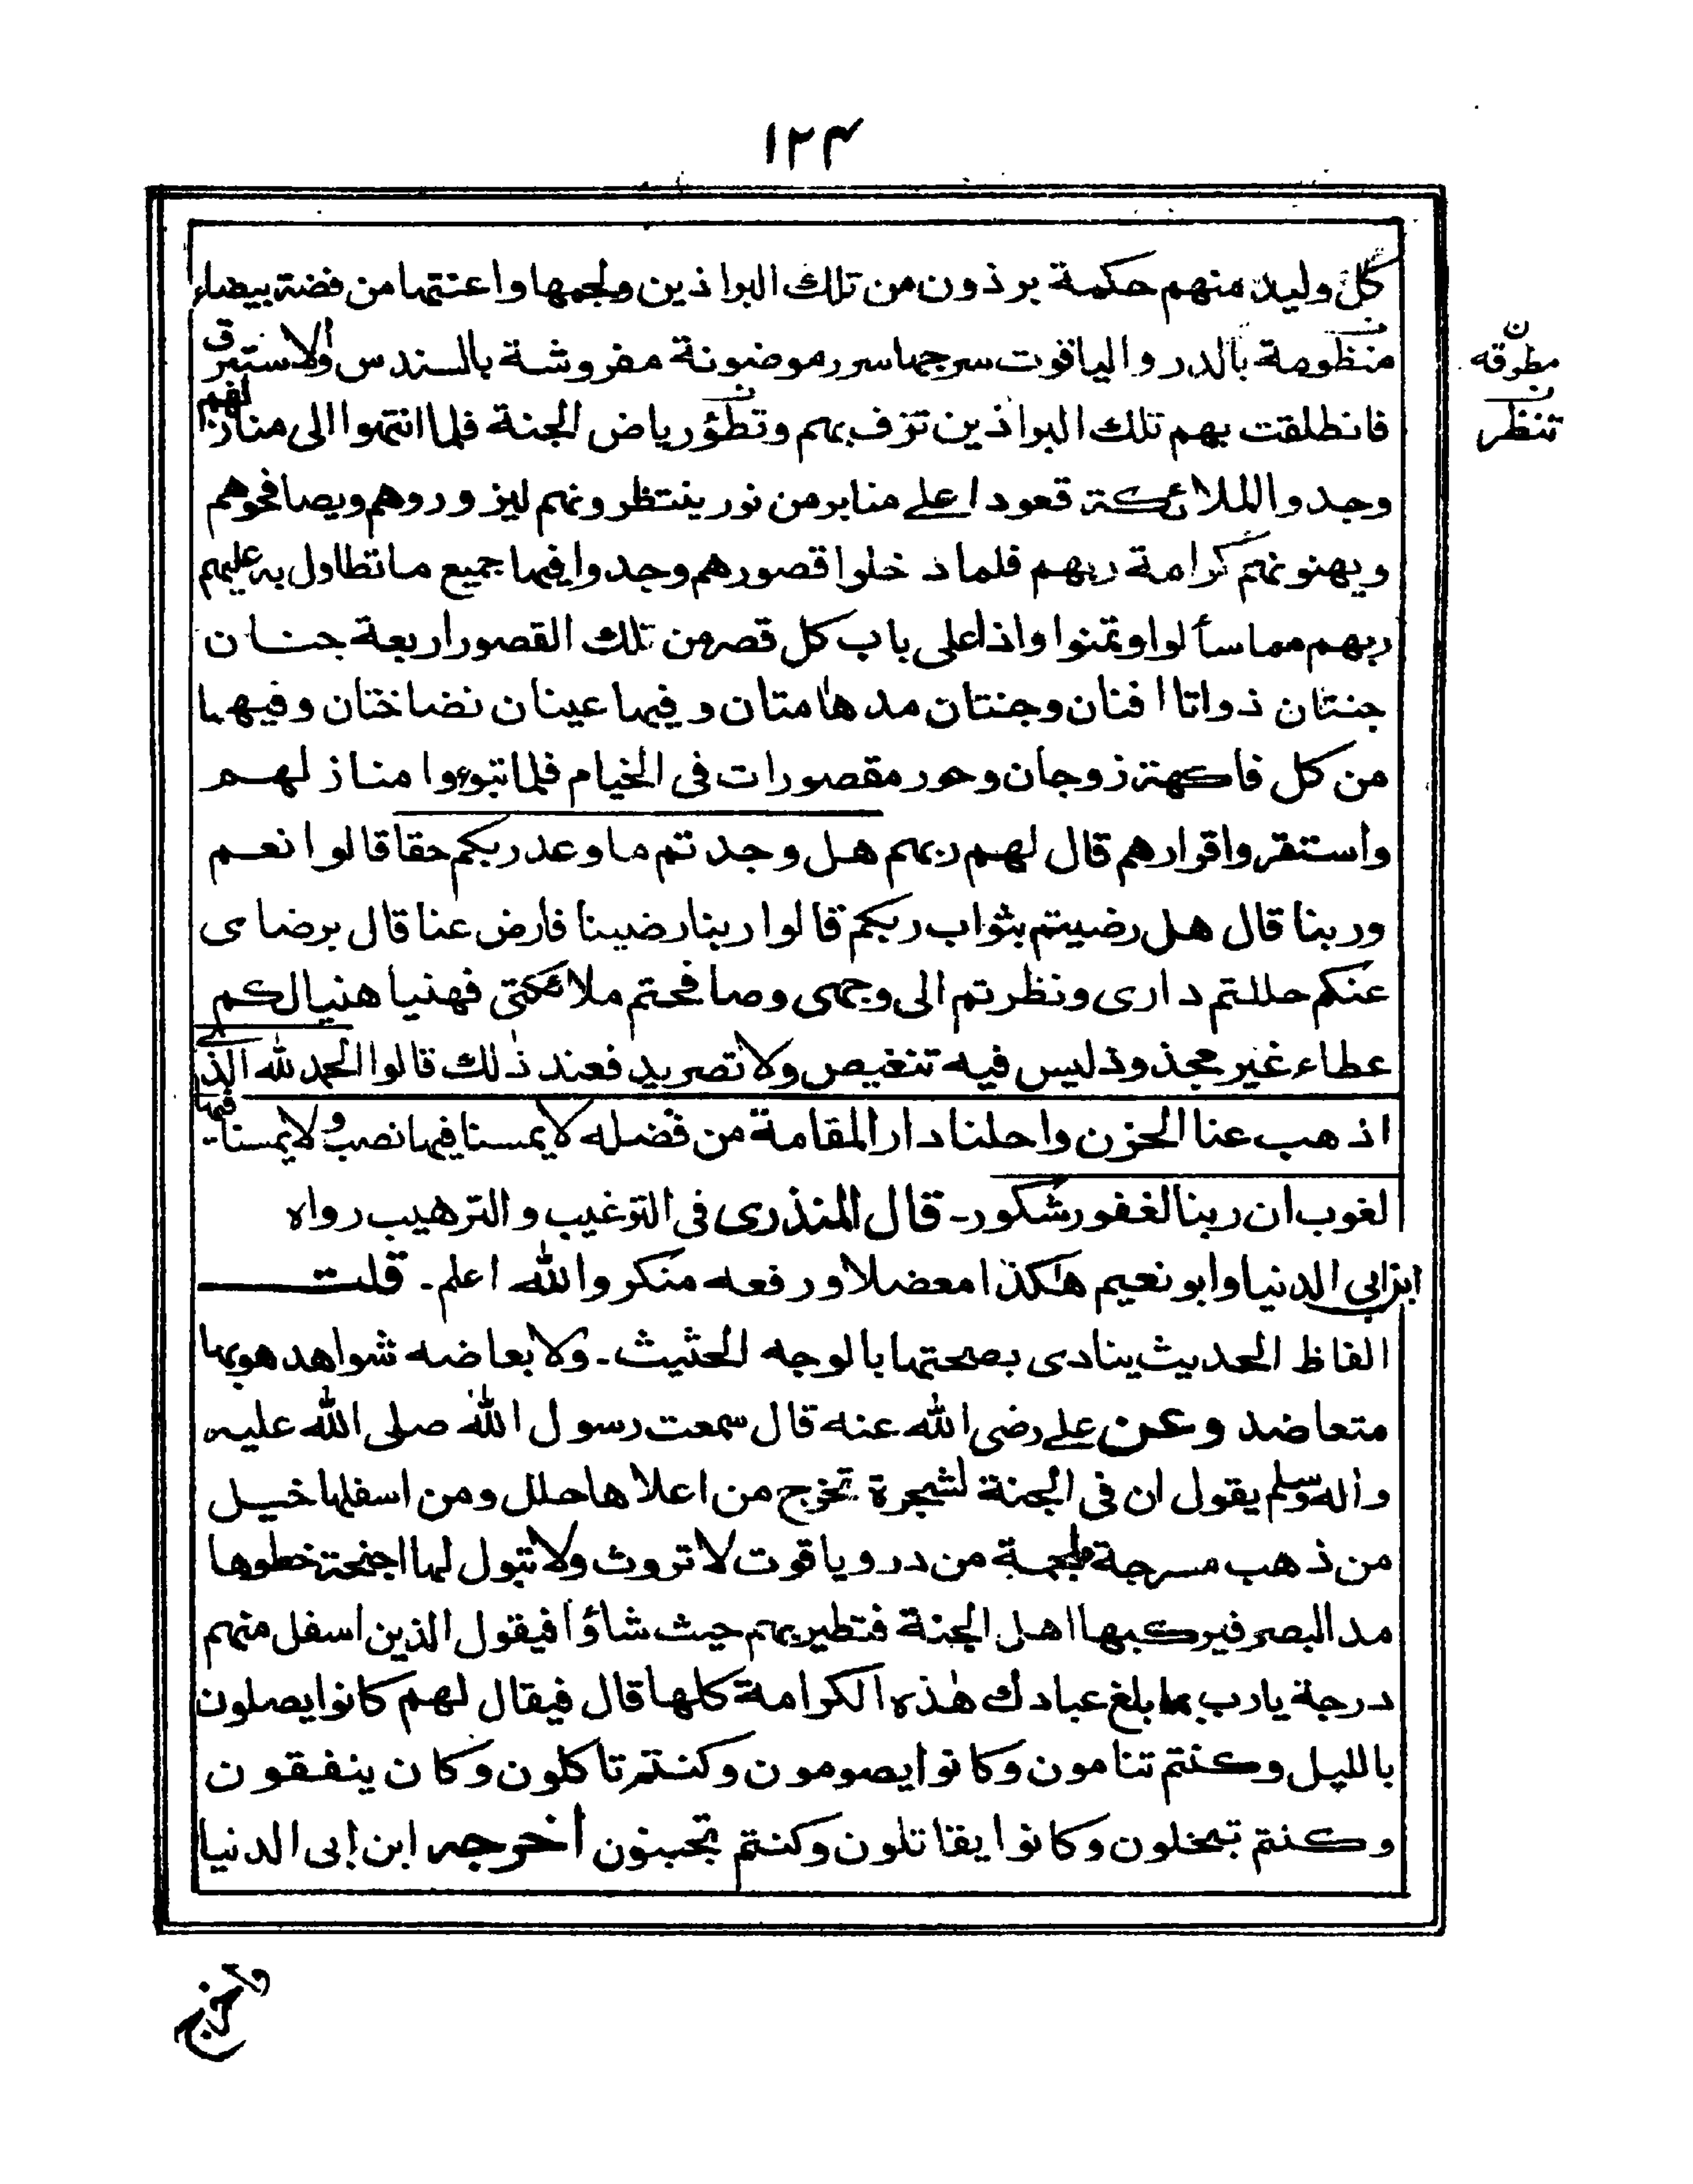 ١٢٤
كل وليد منهم حكمة برذون من تلك البراذين ولجمها واعنتها من فضة بيضاء
منظومة بالدر والياقوت سرجها سرر موضونة مفروشة بالسندس والاستبرق
فانطلقت بهم تلك البراذين تزف بهم وتطؤ رياض الجنة فلما انتهوا الى منازلهم
وجدوا الملائكة قعودا على منابر من نور ينتظرونهم ليزوروهم ويصافحوهم
ويهنونهم كرامة ربهم فلما دخلوا قصورهم وجدوا فيها جميع ما تطاول به عليهم
ربهم مما سألوا وتمنوا واذا على باب كل قصر من تلك القصور اربعة جنان
جنتان ذواتا افنان وجنتان مدهامتان وفيهما عينان نضاختان وفيهما
من كل فاكهة زوجان وحور مقصورات فى الخيام فلما تبوءوا منازلهم
واستقروا قرارهم قال لهم ربهم هل وجدتم ما وعد ربكم حقا قالوا نعم
وربنا قال هل رضيتم بثواب ربكم قالوا ربنا رضينا فارض عنا قال برضاى
عنكم حللتم دارى ونظرتم الى وجهى وصافحتم ملائكتى فهنيا هنيا لكم
عطاء غير مجذوذ ليس فيه تنغيص ولا تصريد فعند ذلك قالوا الحمد لله الذى
اذهب عنا الحزن واحلنا دار المقامة من فضله لا يمسنا فيها نصب ولا يمسنا فيها
لغوب ان ربنا لغفور شكور۔ قال المنذرى فى الترغيب والترهيب رواه
ابن ابي الدنيا وابو نعيم هكذا معضلا ورفعه منكر والله اعلم۔ قلت
الفاظ الحديث ينادى بصحتها بالوجه الحثيث۔ ولا بعاضه شواهد هو بها
متعاضد وعن على رضى الله عنه قال سمعت رسول الله صلى الله عليه
واله وسلم يقول ان فى الجنة لشجرة تخرج من اعلاها حلل ومن اسفلها خيل
من ذهب مسرجة ملجمة من در وياقوت لا تروث ولا تبول لها اجنحة خطوها
مد البصر فيركبها اهل الجنة فتطير بهم حيث شاؤا فيقول الذين اسفل منهم
درجة يارب بما بلغ عبادك هذه الكرامة كلها قال فيقال لهم كانوا يصلون
بالليل وكنتم تنامون وكانوا يصومون وكنتم تاكلون وكان ينفقون
وكنتم تبخلون وكانوا يقاتلون وكنتم تجبنون أخرجه ابن ابى الدنيا
ن
مطوقه
ن
تنظر